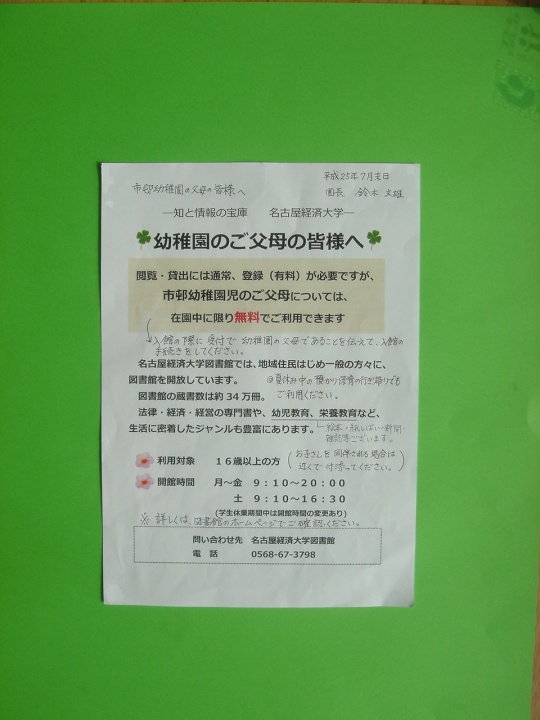 平成25年7月末日
市邨幼稚園の父母の皆様へ
園長 鈴木 文雄
―知と情報の宝庫 名古屋経済大学―
幼稚園のご父母の皆様へ
閲覧・貸出には通常、登録（有料）が必要ですが、
市邨幼稚園児のご父母については、
在園中に限り無料でご利用できます
入館の際に受付で幼稚園の父母であることを伝えて、入館の
手続きをしてください。
名古屋経済大学図書館では、地域住民はじめ一般の方々に、
図書館を開放しています。
◎夏休み中の預かり保育の行き帰りでも
ご利用ください。
図書館の蔵書数は約34万冊。
法律・経済・経営の専門書や、幼児教育、栄養教育など、
生活に密着したジャンルも豊富にあります。
絵本・紙しばい・新聞・
雑誌等ございます。
利用対象 16歳以上の方
(お子さんを同伴される場合は
近くで付添ってください。)
開館時間 月～金 9：10～20：00
土 9：10～16：30
(学生休業期間中は開館時間の変更あり)
※ 詳しくは、図書館のホームページでご確認ください。
問い合わせ先 名古屋経済大学図書館
電 話 0568-67-3798